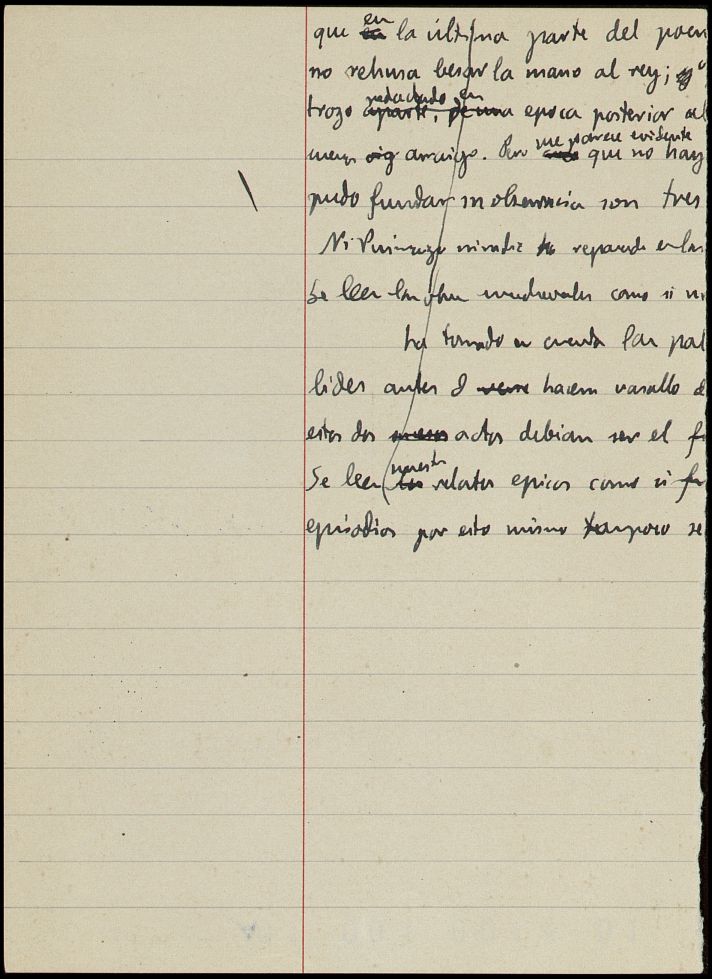 que en la última parte del poem
no rehusa besar la mano al rey; y "
trozo aparte, redactado en de una epoca posterior al
menos arraigo. Pero creo me parece evidente que no hay
pudo fundar su observancia son tres
Ni nadie ha reparado en las
Se leen las obras medievales como si
ha tomado en cuenta las pal
lides antes d hacem vasallo d
estos dos actos debian ser el f
Se leen los nuestros relatos epicos como si fu
episodios por esto mismo tampoco se